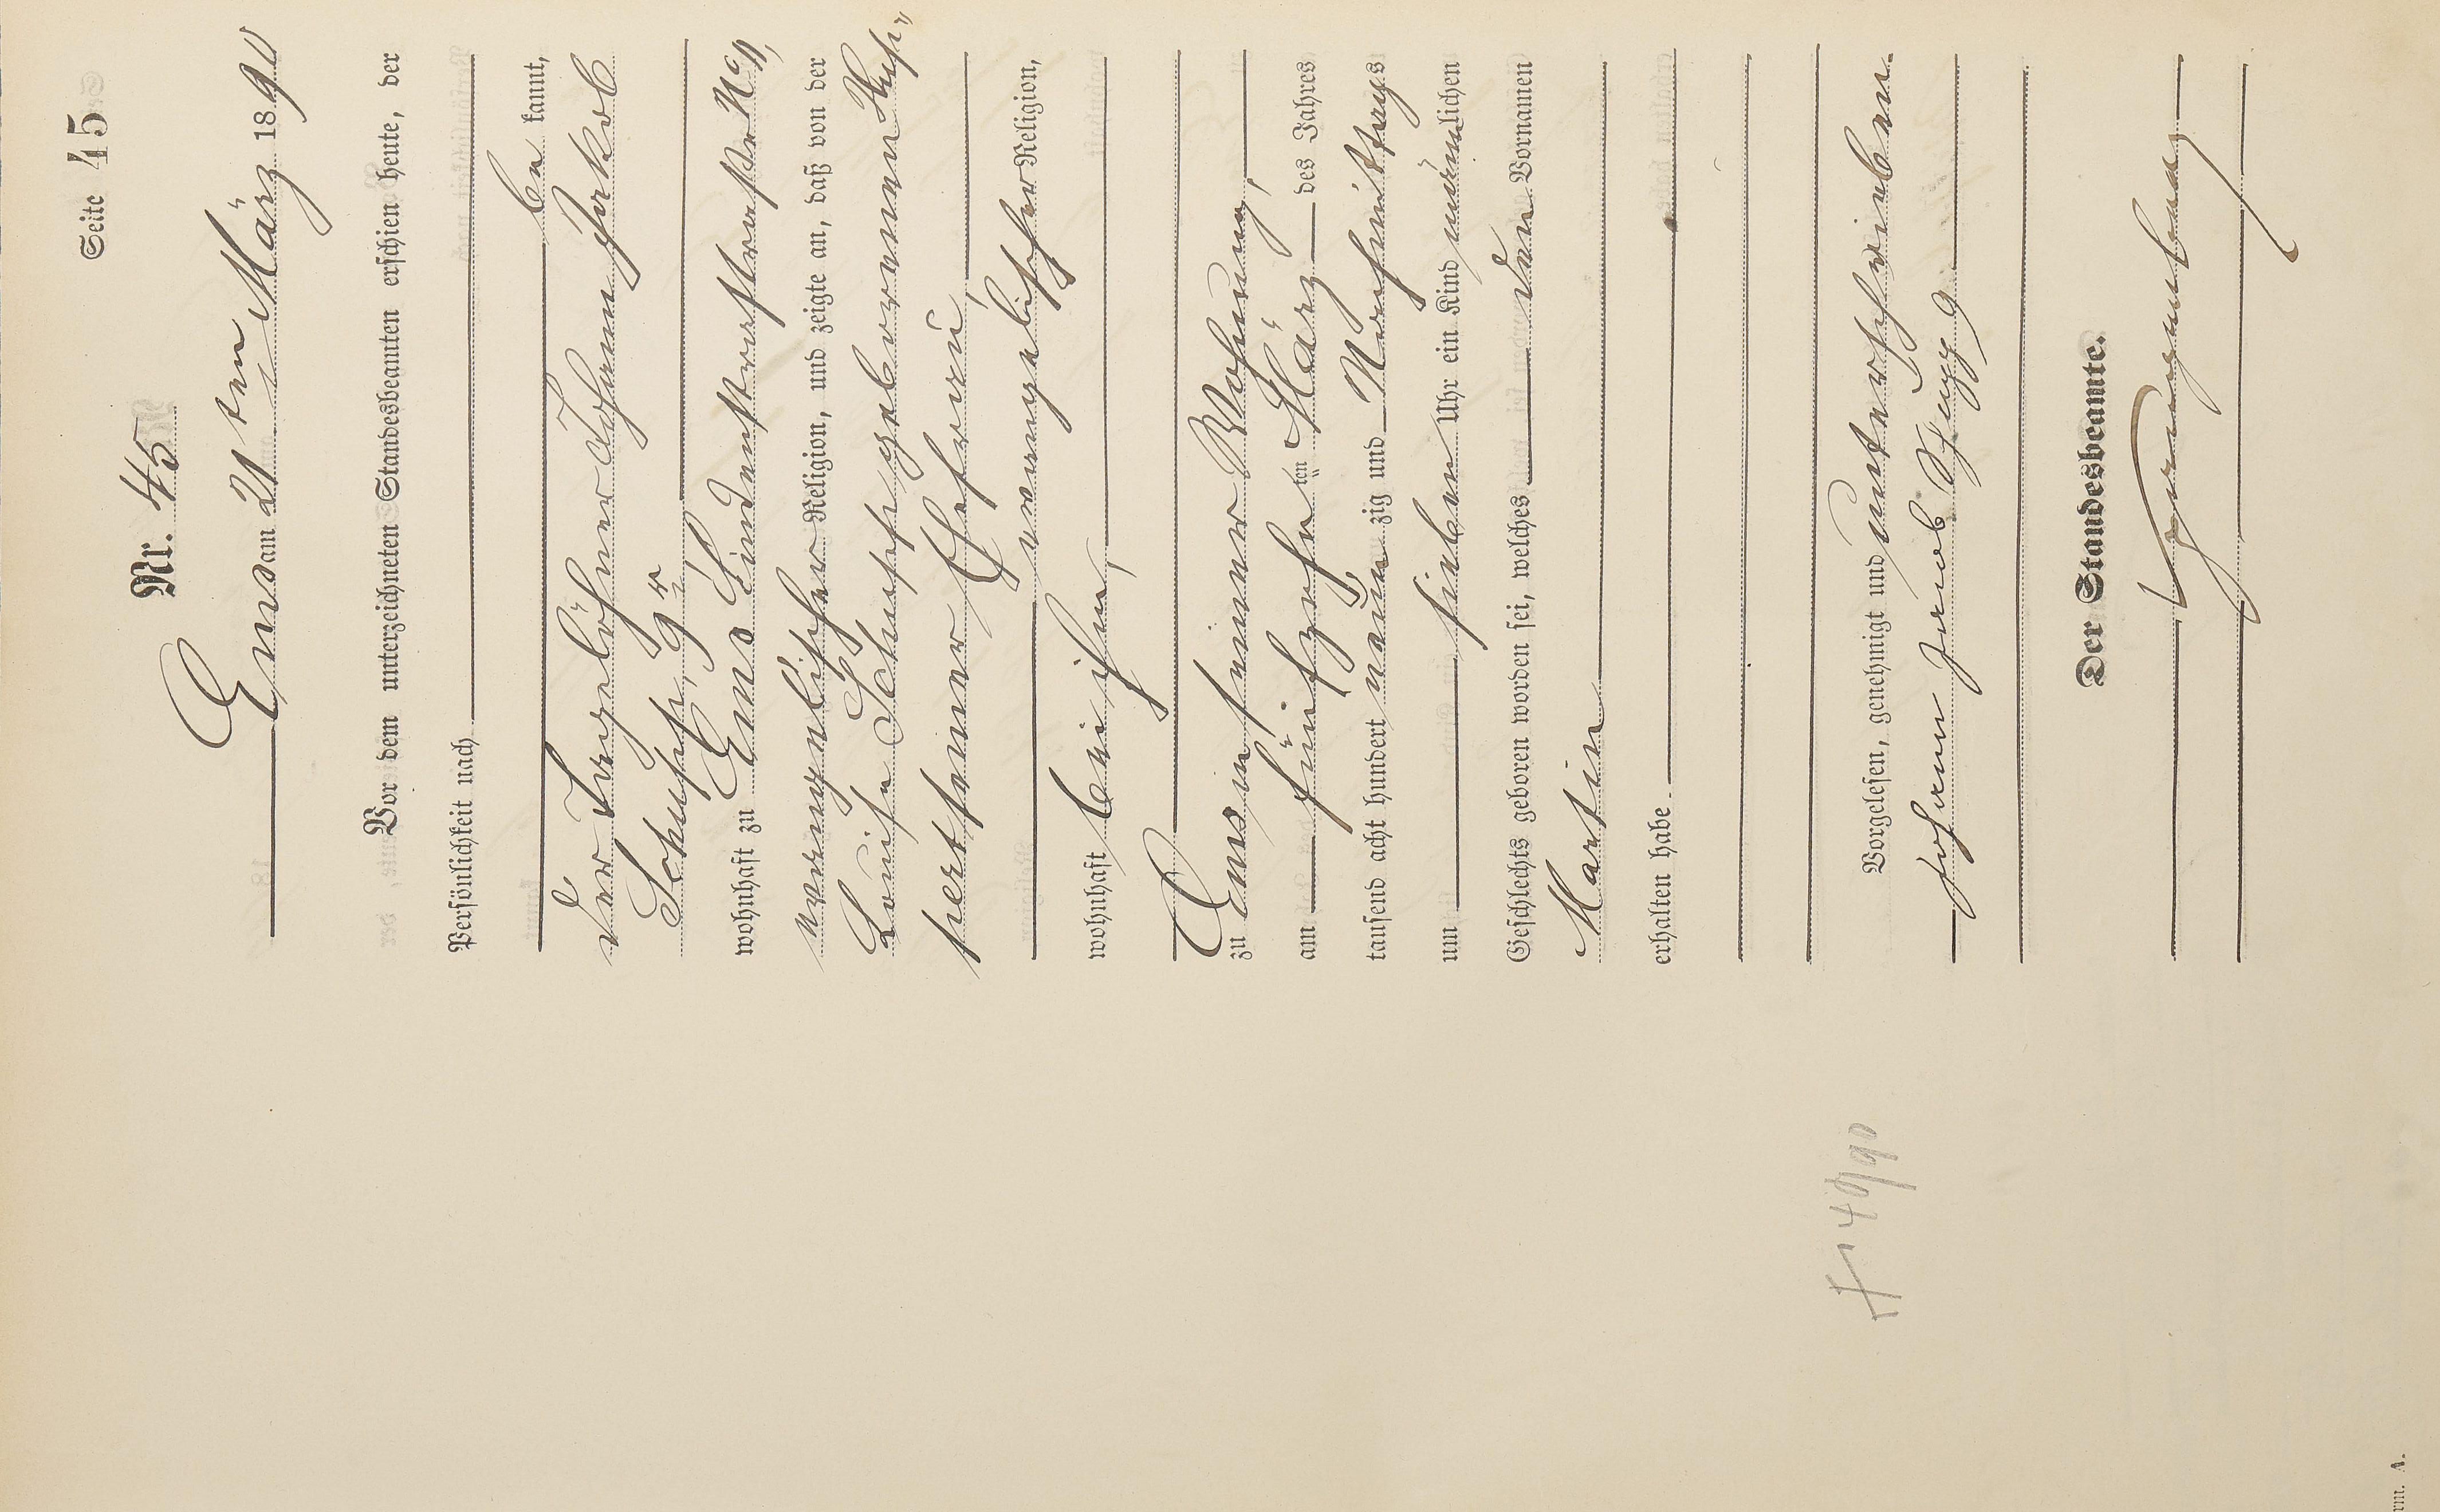 Seite 45
Nr. 45
Ems am 21ten März 1890
Vor dem unterzeichneten Standesbeamten erschien heute, der
Persönlichkeit nach
be kannt,
der Tagelöhner Johann Jakob
Schupp, 9r
wohnhaft zu Ems No 11,
evangelischer Religion, und zeigte an, daß von der
Louise Schupp geborenen
seiner Ehefrau,
evangelischer Religion,
wohnhaft bei ihm,
zu Ems in seiner Wohnung,
am fünfzehn ten März des Jahres
tausend acht hundert neun zig und Nachmittags
um sieben Uhr ein Kind männlichen
Geschlechts geboren worden sei, welches den Vornamen
Martin
erhalten habe.
Vorgelesen, genehmigt und unterschrieben.
Johann Jacob Schupp 9
† 49/90
Der Standesbeamte.
rm. A.